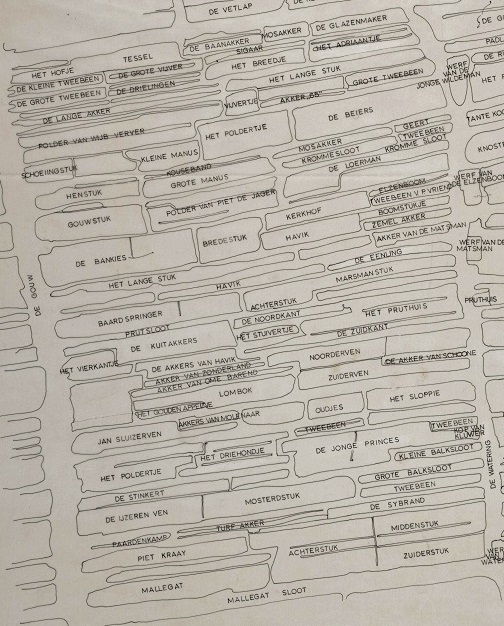 DE VETLAP
DE GLAZENMAKER
MOSAKKER
DE BAANAKKER
SIGAAR
HET ADRIAANTJE
TESSEL
HET BREEDJE
HET HOFJE
DE GROTE VIJVER
DE KLEINE TWEEBEEN
HET LANGE STUK
GROTE TWEEBEEN
WERF VAN DE JONGE WILDEMAN
DE GROTE TWEEBEEN
DE DRIELINGEN
VIJVERTJE
AKKER "88"
DE LANGE AKKER
DE BEIERS
TANTE
POLDER VAN WIJB VERVER
HET POLDERTJE
GEERT
TWEEBEEN
MOSAKKER
KROMME SLOOT
KROMMESLOOT
KLEINE MANUS
DE LOERMAN
SCHOEINGSTUK
KOUSEBAND
GROTE MANUS
WERF VAN DE ELZENBOOM
ELZENBOOM
HENSTUK
POLDER VAN PIET DE JAGER
TWEEBEEN V P VRIEND
BOOMSTUKJE
GOUWSTUK
KERKHOF
ZEMEL AKKER
BREDESTUK
HAVIK
AKKER VAN DE MATSMAN
WERF VAN DE MATSMAN
DE BANKIES
DE EENLING
DE GOUW
HET LANGE STUK
MARSMANSTUK
HAVIK
ACHTERSTUK
PRUTHUIS
BAARDSPRINGER
DE NOORDKANT
HET PRUTHUIS
PRUTSLOOT
HET STUIVERTJE
DE ZUIDKANT
DE KUITAKKERS
NOORDERVEN
DE AKKER VAN SCHOONE
HET VIERKANTJE
DE AKKERS VAN HAVIK
AKKER VAN ZONDERLAND
AKKER VAN OME BAREND
ZUIDERVEN
LOMBOK
HET SLOPPIE
HET GOUDEN APPELTJE
OUDJES
AKKERS VAN MOLENAAR
TWEEBEEN
TWEEBEEN
KOP VAN KLUWER
JAN SLUIZERVEN
DE JONGE PRINCES
HET DRIEHONDJE
KLEINE BALKSLOOT
DE WATERING
HET POLDERTJE
GROTE BALKSLOOT
TWEEBEEN
DE STINKERT
MOSTERDSTUK
DE SYBRAND
DE IJZEREN VEN
TURF AKKER
MIDDENSTUK
PAARDENKAMP
PIET KRAAY
ACHTERSTUK
ZUIDERSTUK
MALLEGAT
MALLEGAT SLOOT